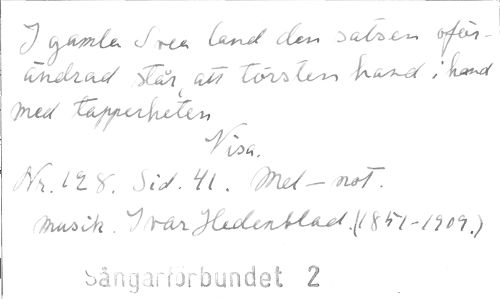 I gamla Svea land den satsen oför-
ändrad står, att törsten hand i hand
med tapperheten
Visa.
Nr. 128. Sid. 41. Mel-not.
musik. Ivar Hedenblad. (1851-1909.)
Sångarförbundet 2